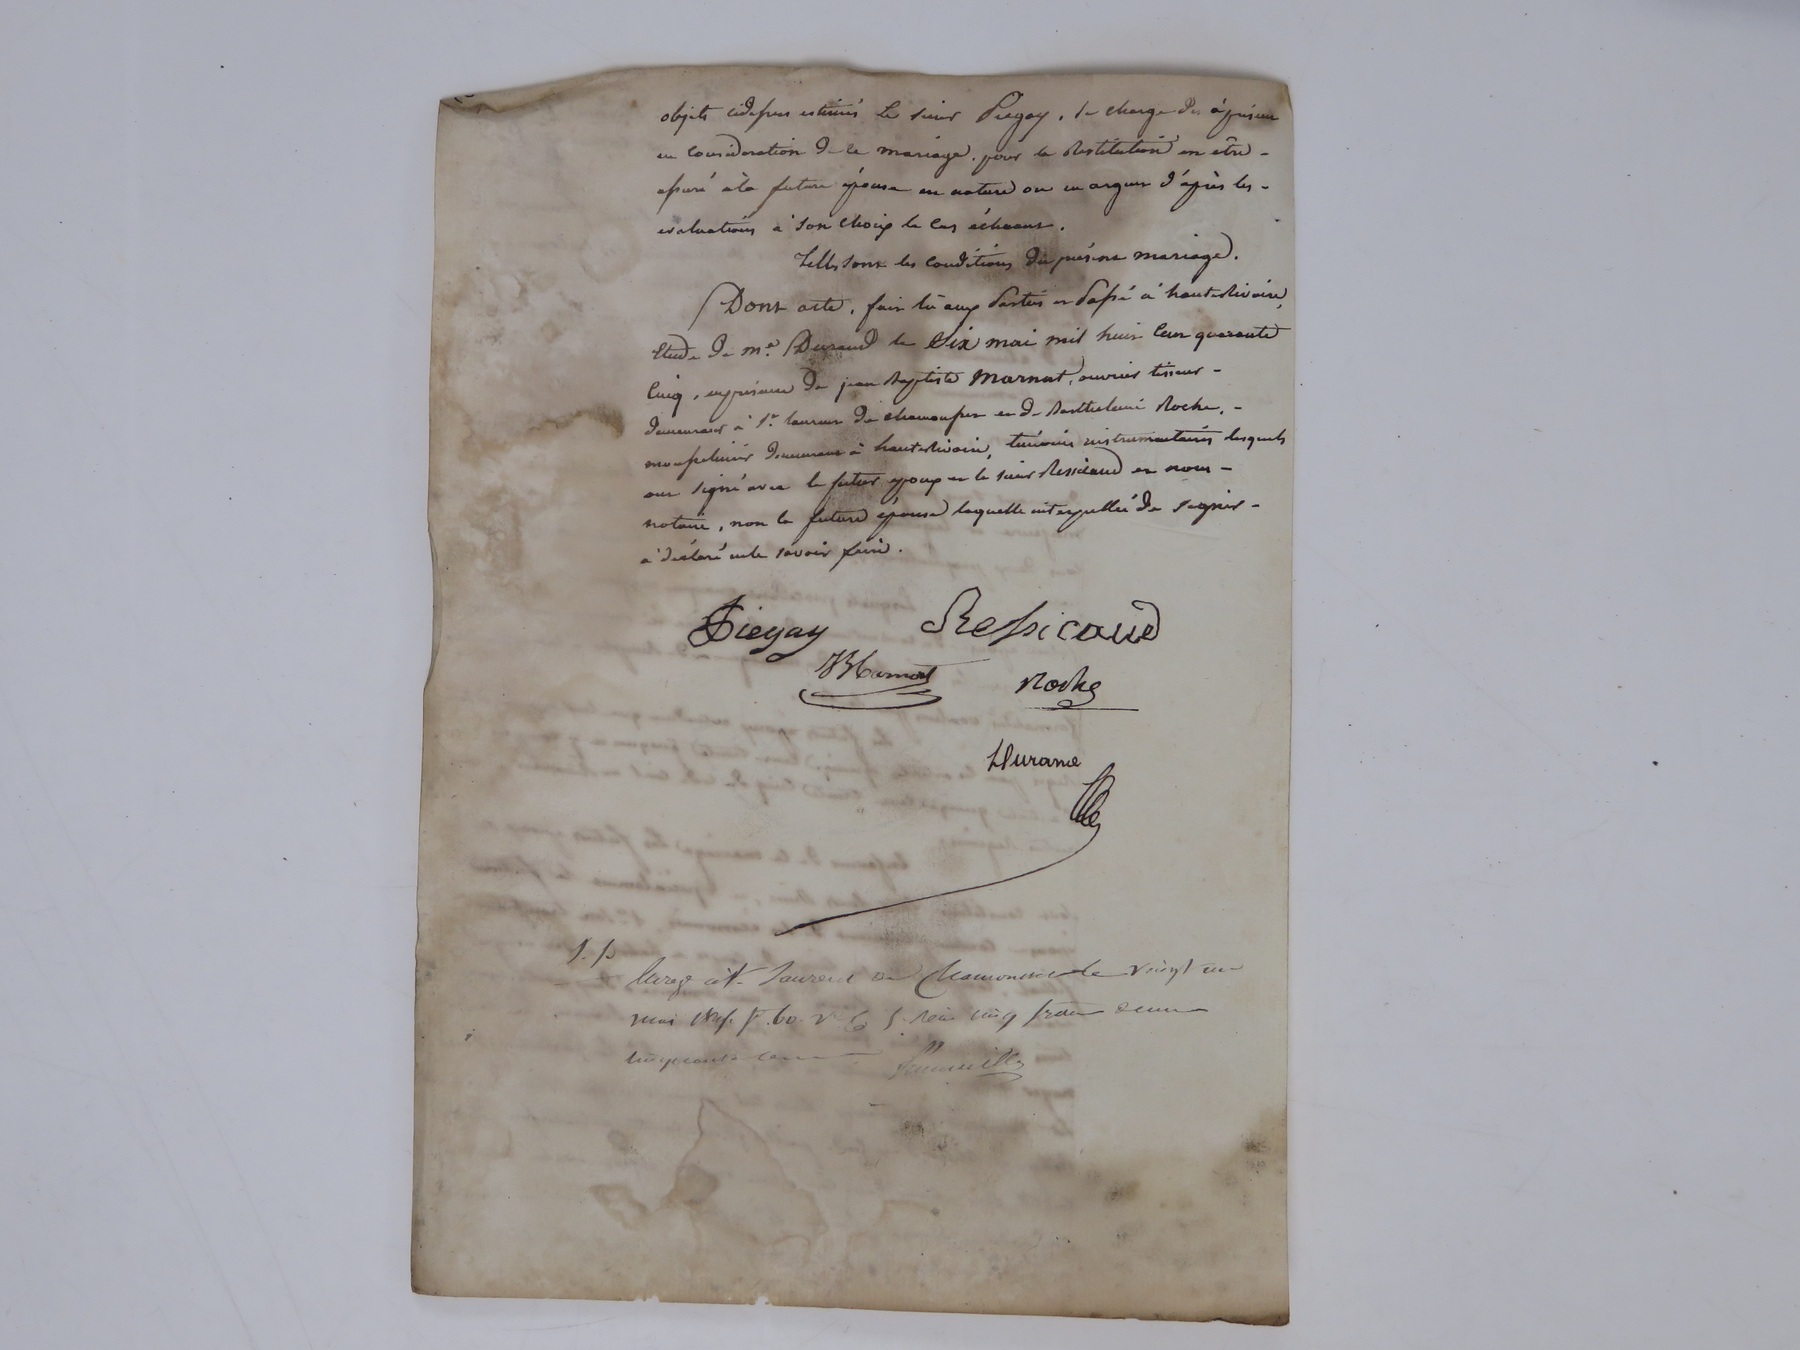 objets cidessus estimés le sieur Piegay, se charge dès àprésent
en considération de ce mariage, pour la Restitution en être -
assuré à la future épouse en nature ou en argent d'après les -
evaluations à son choix le cas échéant.
Telles sont les conditions du présent mariage.
Dont acte, fait lû aux Parties et Passé à hauterivoire,
Etude de me. Durand le Six mai mil huit Cent quarante
Cinq, enprésence de jean Baptiste Marnat, ouvrier tisseur -
demeurant à St. laurent de chamousset et de Barthelemi Roche, -
demeurant à hauterivoire, témoins instrumentaires lesquels
ont signé avec le futur epoux et le sieur Ressicaud et nous -
notaire, non la future épouse laquelle interpellée de signer -
a déclaré nele savoir faire.
Piegay Ressicaud
JB Marnat Roche
Durand
Enreg. à St. Laurent de Chamousset le vingt un
mai 1845 f. 60 v. C. 5. Reçu cinq francs decime
cinquante cent